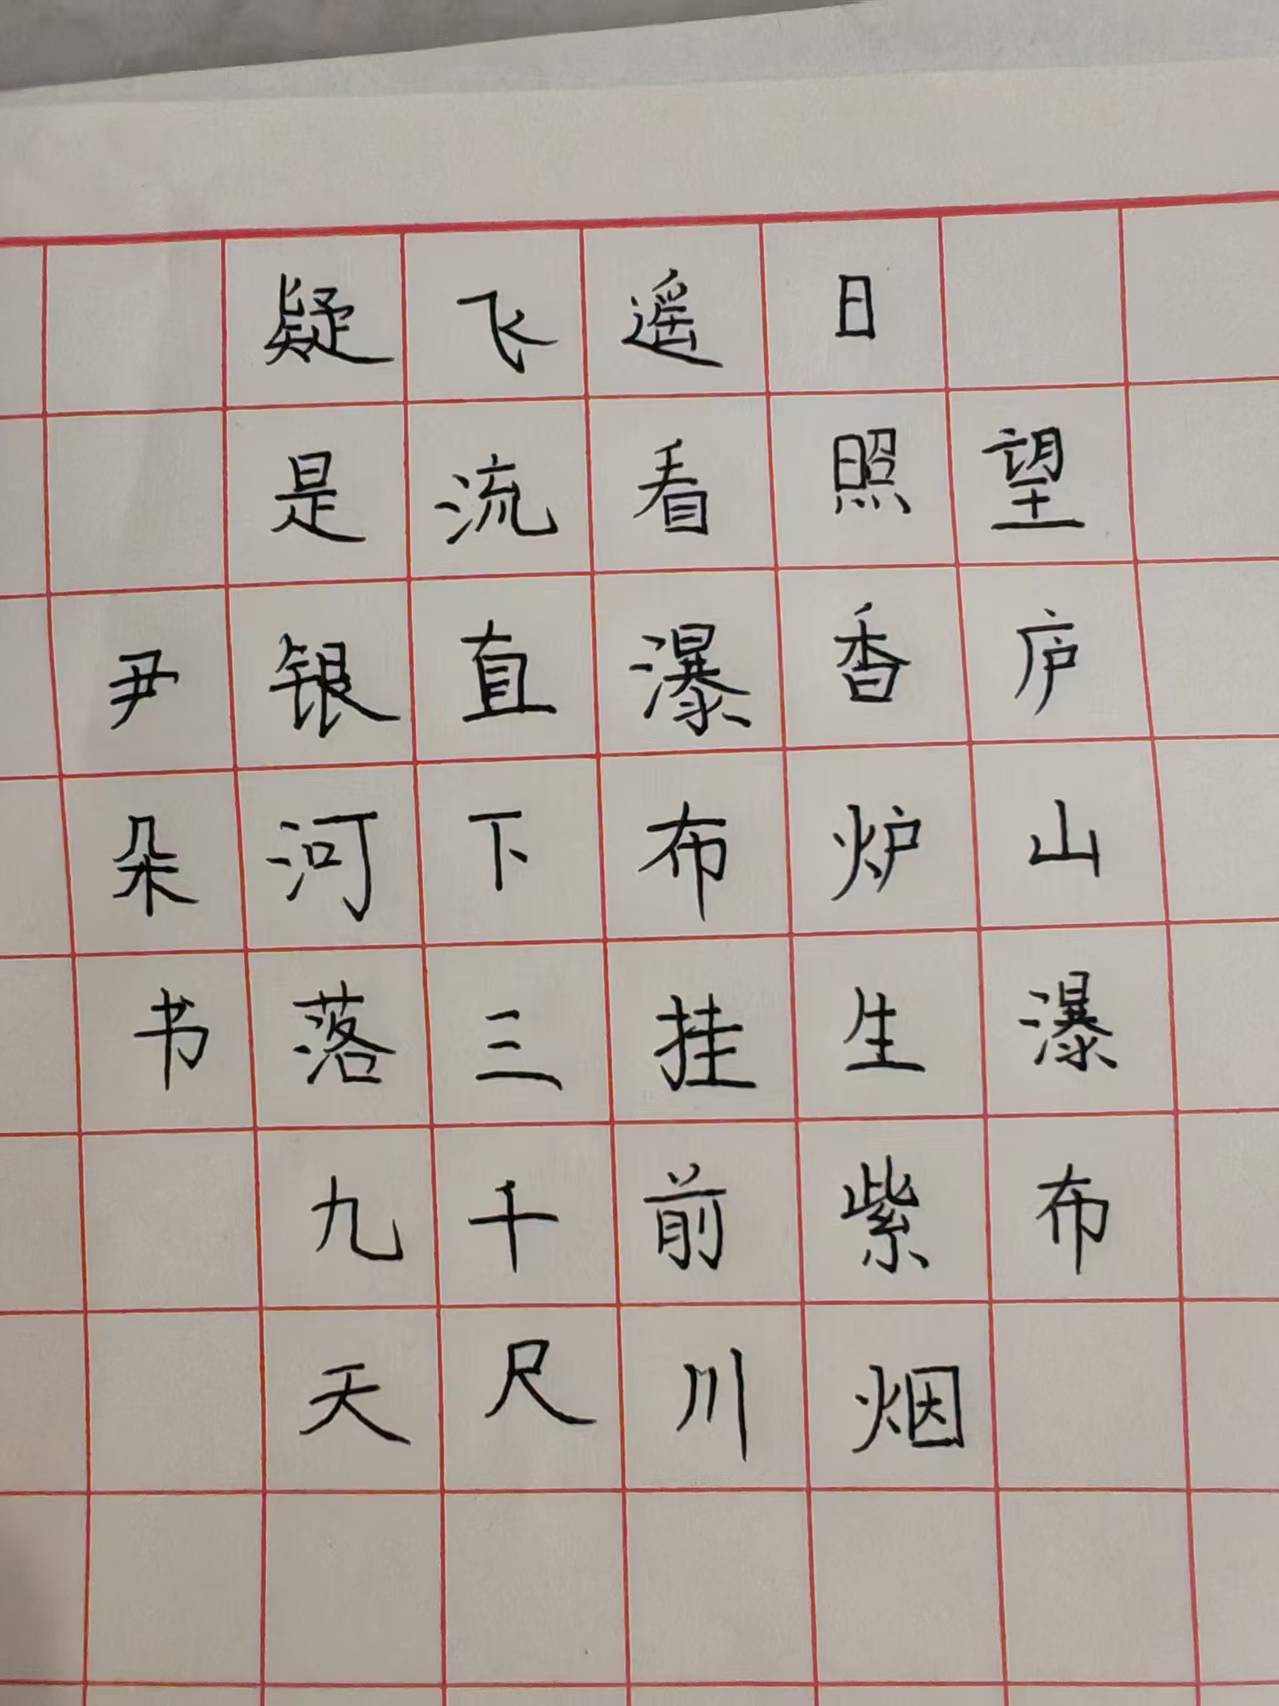 望庐山瀑布
日照香炉生紫烟
遥看瀑布挂前川
飞流直下三千尺
疑是银河落九天
尹朵书